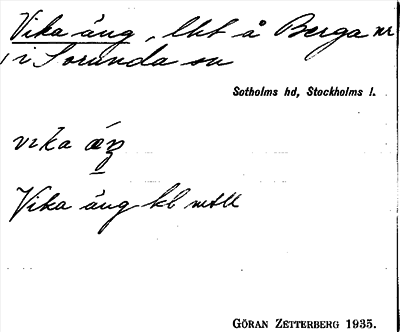 Vika äng, lht å Berga nr
1 i Sorunda sn
Sotholms hd, Stockholms l.
vika æŋ
Vika äng kl mtll
GÖRAN ZETTERBERG 1935.